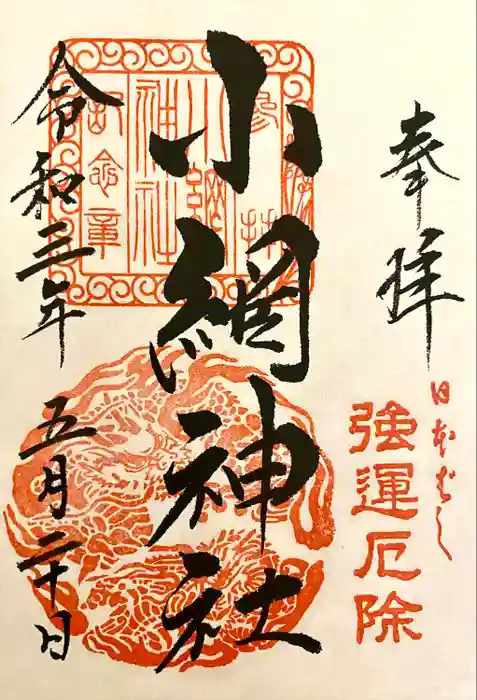 奉拝
日本ばし
強運厄除
小網神社
参拝
小網
神社
記念章
令和三年
五月二十日